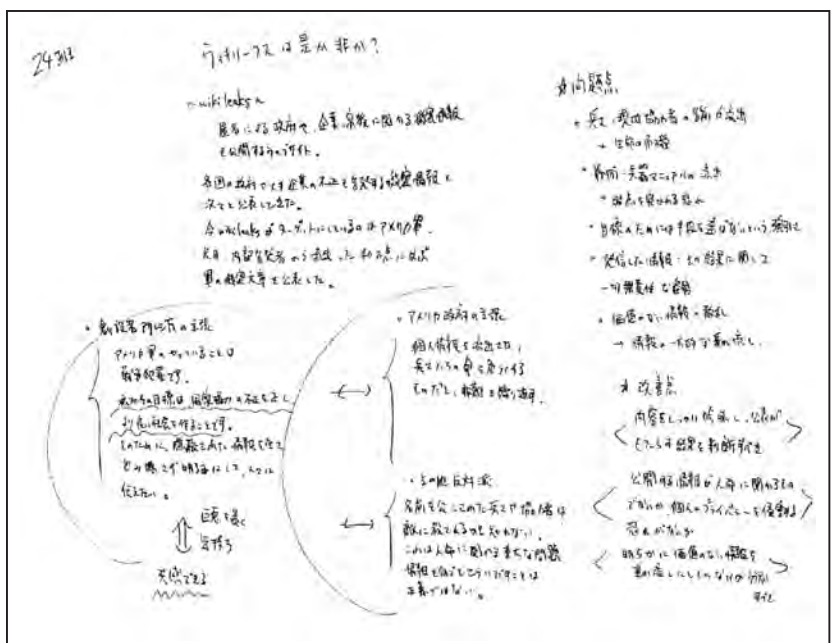 ウィキリークスは是か非か？
〜wikileaks〜
匿名による政府や、企業、宗教に関する機密情報
を公開するウェブサイト。
各国の政府や大手企業の不正を告発する機密情報を
次々と公表してきた。
今wikileaksがターゲットにしているのはアメリカ軍。
内部告発者から
軍の機密文書を公表した。
・創設者 の主張
アメリカ軍のやっていることは
戦争犯罪です。
私たちの目標は、 の不正を正し、
より良い社会を作ることです。
そのために、隠蔽された情報を全て
明るみにして、人々に
伝えたい。
巨悪を暴く
気持ち
共感できる
・アメリカ政府の主張
個人情報を流出させ、
兵士たちの命を危うくする
ものだと、非難を繰り返す。
・その他反対派
名前を公にされた兵士や協力者は
敵に殺されるかもしれない。
これは人命に関わる重大な問題
情報を何でもこうひょうすることは
正義ではない。
☆問題点
・兵士、現地協力者の名前が流出
→ 生命の危機
・ 兵器マニュアルの流出
・弱点を突かれる恐れ
・目標のためには手段を選ばないという強引さ
・発信した情報・その結果に関して
無責任な姿勢
・価値のない情報の散乱
→ 情報の
☆改善点
内容をしっかり検証し、公表が
もたらす結果を判断すべき
公開する情報が人命に関わるもの
でないか、個人のプライバシーを侵害する
恐れがないか
明らかに価値のない情報を